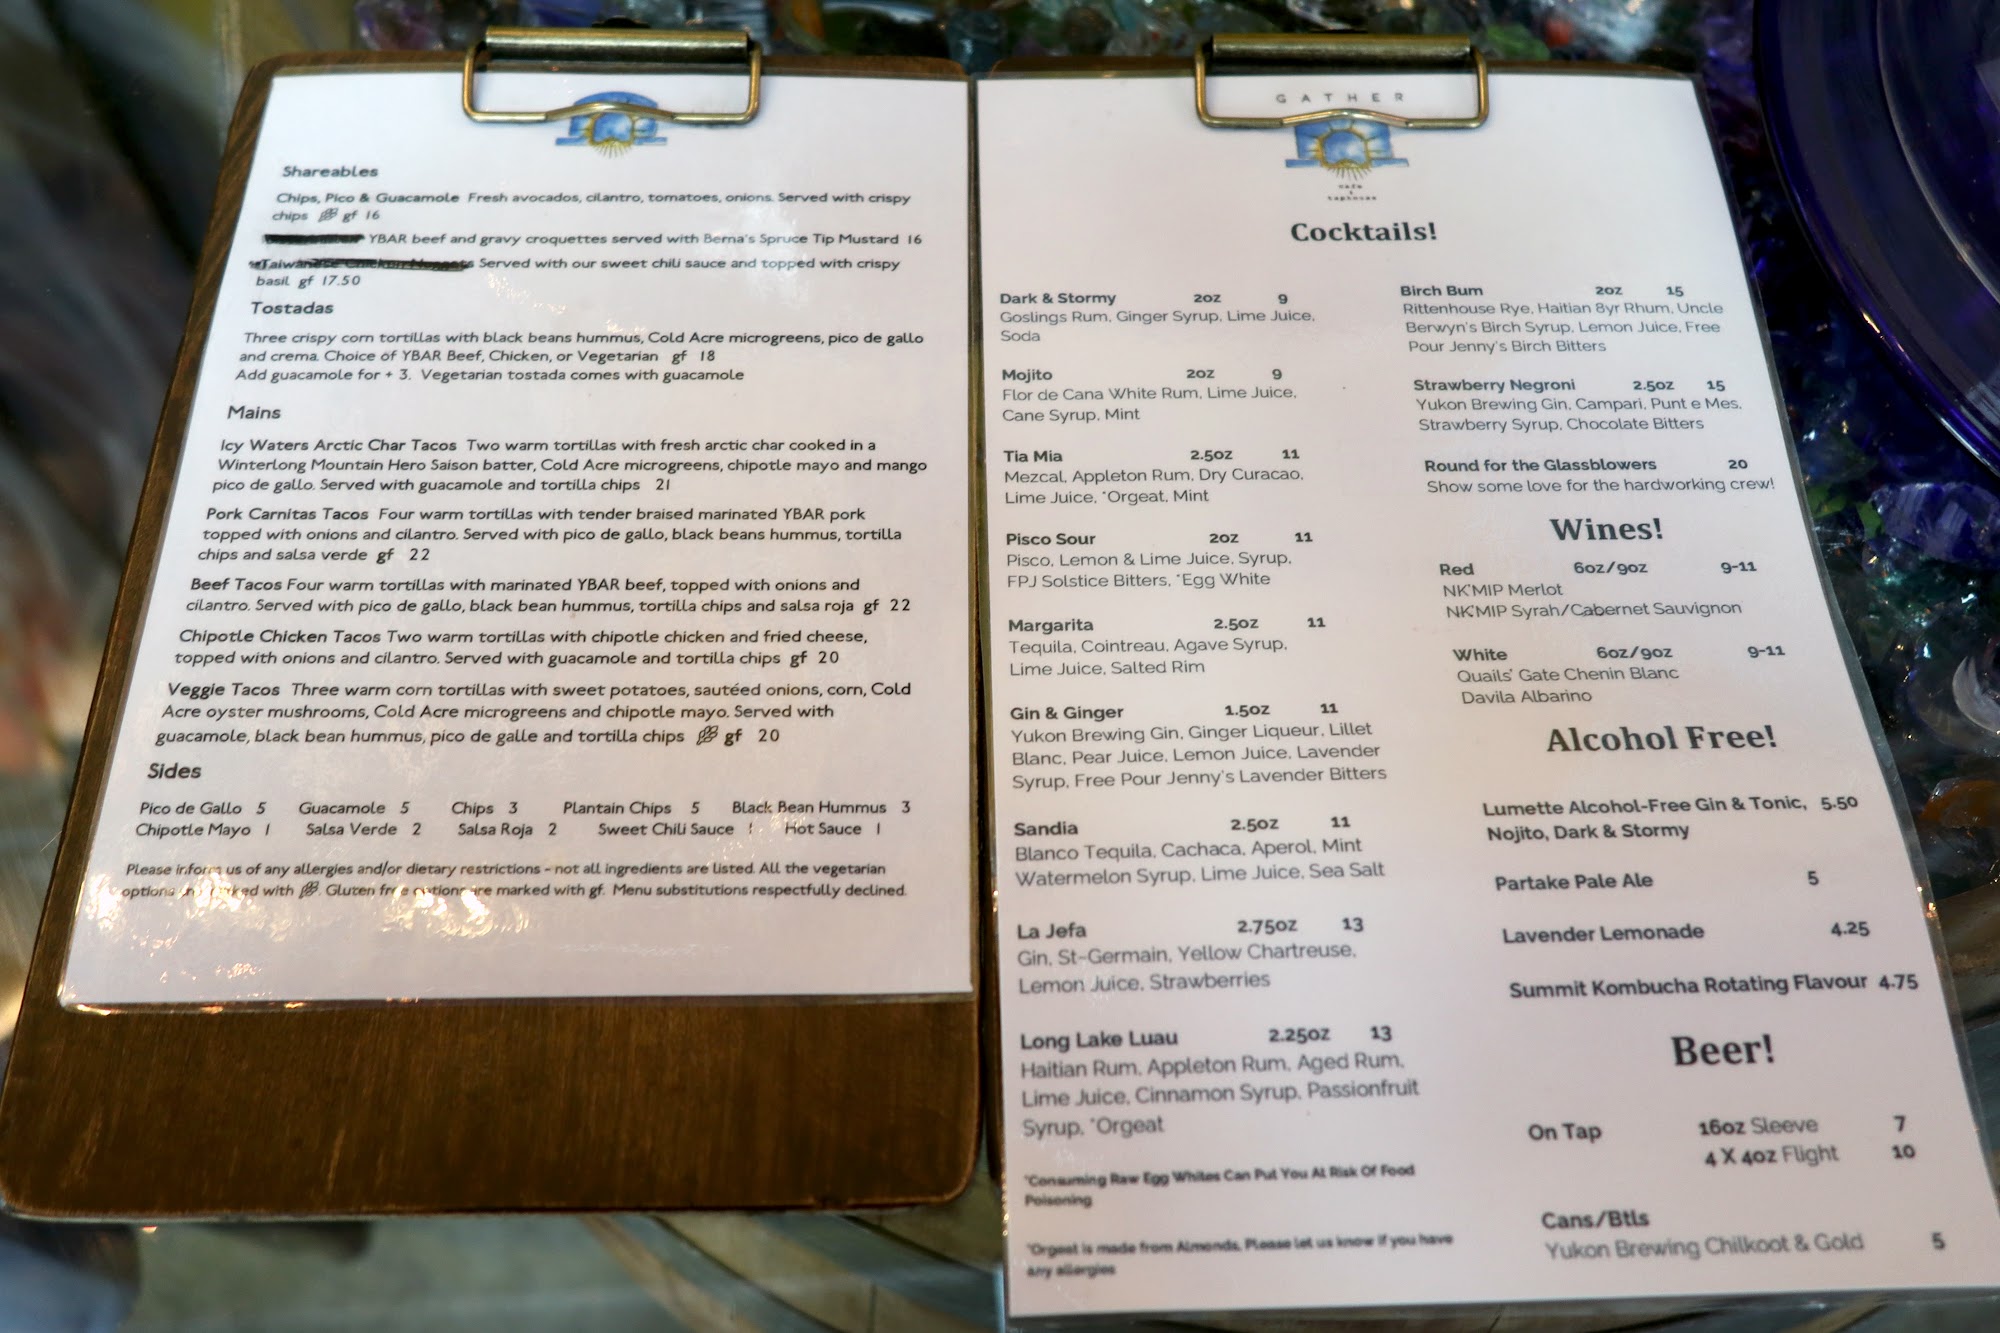 Shareables
Chips, Pico & Guacamole Fresh avocados, cilantro, tomatoes, onions. Served with crispy
chips gf 16
YBAR beef and gravy croquettes served with Berna's Spruce Tip Mustard 16
Taiwanese Chicken Nuggets Served with our sweet chili sauce and topped with crispy
basil gf 17.50
Tostadas
Three crispy corn tortillas with black beans hummus, Cold Acre microgreens, pico de gallo
and crema. Choice of YBAR Beef, Chicken, or Vegetarian gf 18
Add guacamole for + 3. Vegetarian tostada comes with guacamole
Mains
Icy Waters Arctic Char Tacos Two warm tortillas with fresh arctic char cooked in a
Winterlong Mountain Hero Saison batter, Cold Acre microgreens, chipotle mayo and mango
pico de gallo. Served with guacamole and tortilla chips 21
Pork Carnitas Tacos Four warm tortillas with tender braised marinated YBAR pork
topped with onions and cilantro. Served with pico de gallo, black beans hummus, tortilla
chips and salsa verde gf 22
Beef Tacos Four warm tortillas with marinated YBAR beef, topped with onions and
cilantro. Served with pico de gallo, black bean hummus, tortilla chips and salsa roja gf 22
Chipotle Chicken Tacos Two warm tortillas with chipotle chicken and fried cheese,
topped with onions and cilantro. Served with guacamole and tortilla chips gf 20
Veggie Tacos Three warm corn tortillas with sweet potatoes, sautéed onions, corn, Cold
Acre oyster mushrooms, Cold Acre microgreens and chipotle mayo. Served with
guacamole, black bean hummus, pico de galle and tortilla chips gf 20
Sides
Pico de Gallo 5 Guacamole 5 Chips 3 Plantain Chips 5 Black Bean Hummus 3
Chipotle Mayo 1 Salsa Verde 2 Salsa Roja 2 Sweet Chili Sauce 1 Hot Sauce 1
Please inform us of any allergies and/or dietary restrictions - not all ingredients are listed. All the vegetarian
options are marked with . Gluten free options are marked with gf. Menu substitutions respectfully declined.
GATHER
Cocktails!
Dark & Stormy 2oz 9
Goslings Rum, Ginger Syrup, Lime Juice,
Soda
Mojito 2oz 9
Flor de Cana White Rum, Lime Juice,
Cane Syrup, Mint
Tia Mia 2.5oz 11
Mezcal, Appleton Rum, Dry Curacao,
Lime Juice, *Orgeat, Mint
Pisco Sour 2oz 11
Pisco, Lemon & Lime Juice, Syrup,
FPJ Solstice Bitters, *Egg White
Margarita 2.5oz 11
Tequila, Cointreau, Agave Syrup,
Lime Juice, Salted Rim
Gin & Ginger 1.5oz 11
Yukon Brewing Gin, Ginger Liqueur, Lillet
Blanc, Pear Juice, Lemon Juice, Lavender
Syrup, Free Pour Jenny's Lavender Bitters
Sandia 2.5oz 11
Blanco Tequila, Cachaca, Aperol, Mint
Watermelon Syrup, Lime Juice, Sea Salt
La Jefa 2.75oz 13
Gin, St-Germain, Yellow Chartreuse,
Lemon Juice, Strawberries
Long Lake Luau 2.25oz 13
Haitian Rum, Appleton Rum, Aged Rum,
Lime Juice, Cinnamon Syrup, Passionfruit
Syrup, *Orgeat
*Consuming Raw Egg Whites Can Put You At Risk Of Food
Poisoning
*Orgeat is made from Almonds, Please let us know if you have
any allergies
Birch Bum 2oz 15
Rittenhouse Rye, Haitian 8yr Rhum, Uncle
Berwyn's Birch Syrup, Lemon Juice, Free
Pour Jenny's Birch Bitters
Strawberry Negroni 2.5oz 15
Yukon Brewing Gin, Campari, Punt e Mes,
Strawberry Syrup, Chocolate Bitters
Round for the Glassblowers 20
Show some love for the hardworking crew!
Wines!
Red 6oz/9oz 9-11
NK'MIP Merlot
NK'MIP Syrah/Cabernet Sauvignon
White 6oz/9oz 9-11
Quails' Gate Chenin Blanc
Davila Albarino
Alcohol Free!
Lumette Alcohol-Free Gin & Tonic, 5.50
Nojito, Dark & Stormy
Partake Pale Ale 5
Lavender Lemonade 4.25
Summit Kombucha Rotating Flavour 4.75
Beer!
On Tap 16oz Sleeve 7
4 X 4oz Flight 10
Cans/Btls
Yukon Brewing Chilkoot & Gold 5